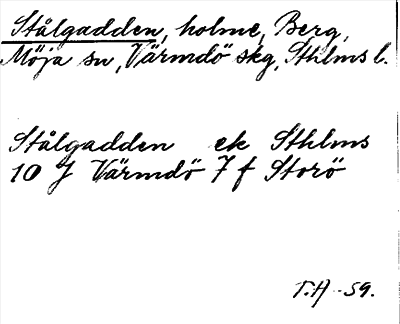 Stålgadden, holme, Berg,
Möja sn, Värmdö skg, Sthlms l.
Stålgadden ek Sthlms
10 J Värmdö 7 f Storö
T.A -59.